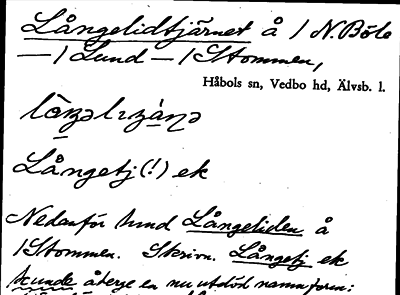 Långelidtjärnet å 1 N. Böle
— 1 Lund — 1 Stommen,
Håbols sn, Vedbo hd, Älvsb. l.
Långetj (!) ek
Nedanför hund Långeliden å
1 Stommen. Skrivn. Långetj ek
kunde återge en nu utdöd namnform: